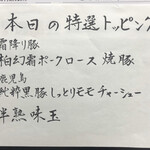 本日の特選トッピング
霜降り豚
柏幻霜ポークロース 焼豚
鹿児島
純粋黒豚しっとりモモチャーシュー
半熟味玉